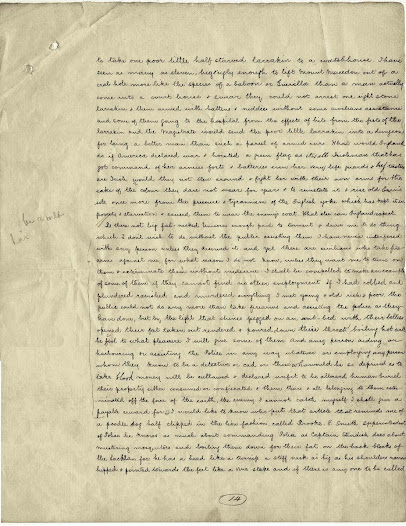 to take one poor little half starved larrakin to a watchhouse. I have
seen as many as eleven, big & ugly enough to lift Mount Macedon out of a
crab hole more like the species of a baboon or Guerilla than a man actually
come into a court house & swear they could not arrest one eight stone
larrakin & them armed with battens & niddies without some civilians assistance
and some of them going to the hospital from the effects of hits from the fists of the
larrakin and the Magistrate would send the poor little larrakin into a dungeon
for being a better man than such a parcel of armed curs. What would England
do if America declared war & hoisted a green flag as it's all Irishmen that has
got command of her armies forts & batteries even her very life guards & beef tasters
are Irish would they not slew around & fight her with their own arms for the
sake of the colour they dare not wear for years & to reinstate it & rise old Erin's
isle once more from the pressure & tyrannism of the English yoke which has kept them in
poverty & starvation & caused them to wear the enemy's coat. What else can England expect.
Is there not big fat-necked Unicorns enough paid to torment & drive me to do things
which I don't wish to do without the public assisting them I have never interfered
with any person unless they deserved it and yet there are civilians who take fire
arms against me for what reason I do not know unless they want me to turn on
them & exterminate them without medicine. I shall be compelled to make an example
of some of them if they cannot find no other employment If I had robbed and
plundered ravished and murdered everything I met young & old rich & poor the
public could not do any more than take firearms and assisting the police as they
have done, but by the light that shines pegged on an ant-bed with their bellies
opened their fat taken out rendered & poured down their throat boiling hot will
be fool to what pleasure I will give some of them and any person aiding or
harbouring or assisting the Police in any way whatever or employing any person
whom they know to be a detective or cad or those who would be so depraved as to
take blood money will be outlawed & declared unfit to be allowed human burial
their property either consumed or confiscated & them theirs & all belonging to them exter-
minated off the face of the earth, the enemy I cannot catch myself I shall give a
payable reward for, I would like to know who put that article that reminds me of
a poodle dog half clipped in the lion fashion called Brooke E. Smith Superintendent
of Police he knows as much about commanding Police as Captain Standish does about
mustering mosquitoes and boiling them down for their fat on the back blocks of
the Lachlan for he has a head like a turnip a stiff neck as big as his shoulders narrow
hipped & pointed towards the feet like a vine stake and if there is any one to be called
14